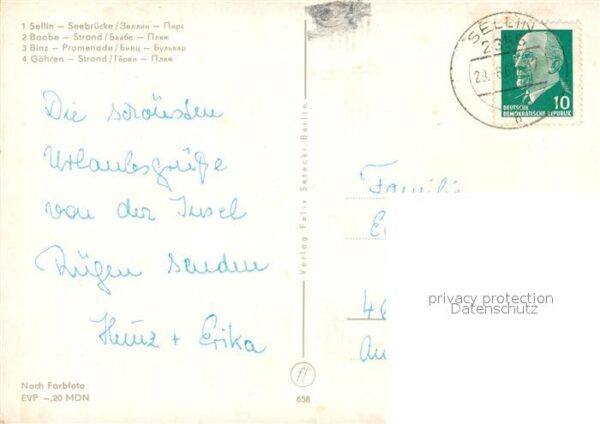 1 Sellin – Seebrücke/Зеллин – Пирс
2 Baabe – Strand/Баабе – Пляж
3 Binz – Promenade/Бинц – Бульвар
4 Göhren – Strand/Гёрен – Пляж
Die schönsten
Urlaubsgrüße
von der Insel
Rügen senden
Heinz + Erika
Nach Farbfoto
EVP –,20 MDN
Verlag Felix Setecki, Berlin
ff
658
SELLIN
2356
b
10
DEUTSCHE
DEMOKRATISCHE REPUBLIK
Familie
46
privacy protection
Datenschutz